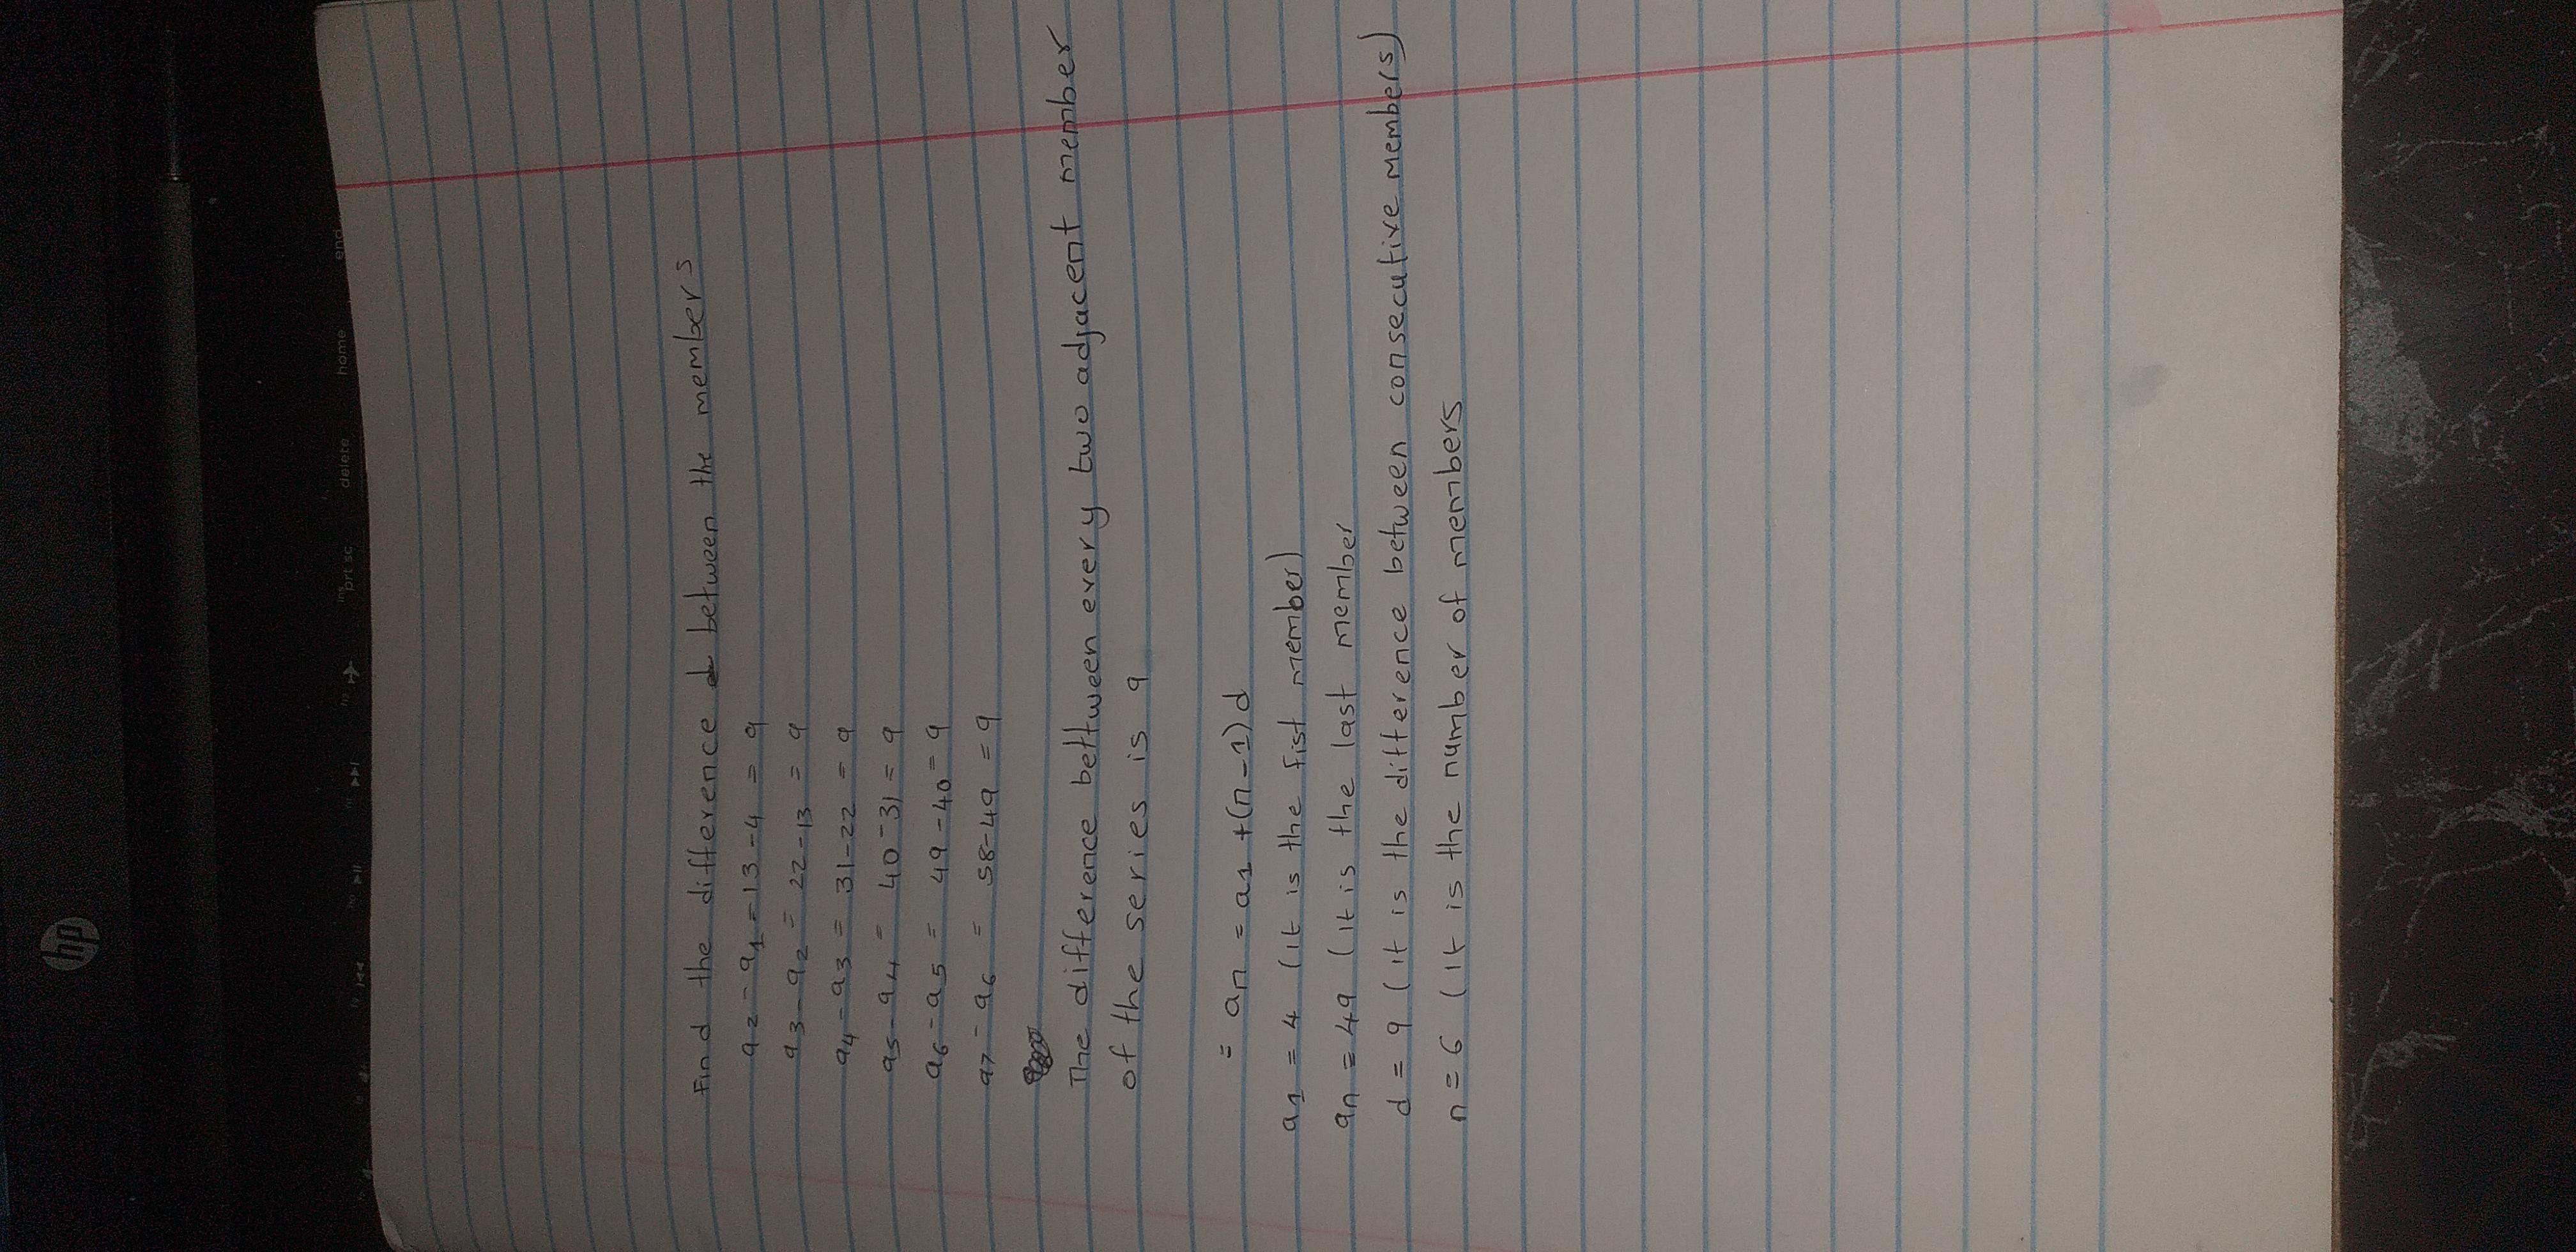 Find the difference d between the members
a2 - a1 = 13 - 4 = 9
a3 - a2 = 22 - 13 = 9
a4 - a3 = 31 - 22 = 9
a5 - a4 = 40 - 31 = 9
a6 - a5 = 49 - 40 = 9
a7 - a6 = 58 - 49 = 9
The difference bettween every two adjacent member
of the series is 9
= an = a1 + (n-1)d
a1 = 4 (it is the fist member)
an = 49 (it is the last member
d = 9 (it is the difference between consecutive members)
n = 6 (it is the number of members
hp
prt sc
delete
home
end